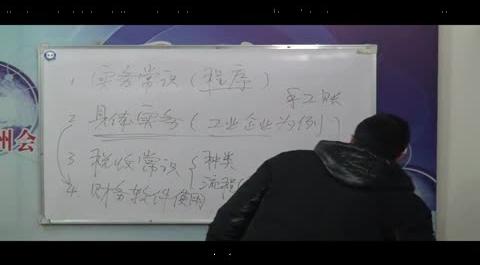 1. 实务常识（程序）
手工账
2. 具体实务（工业企业为例）
3 税收常识 { 种类
流程
4. 财务软件使用
州会